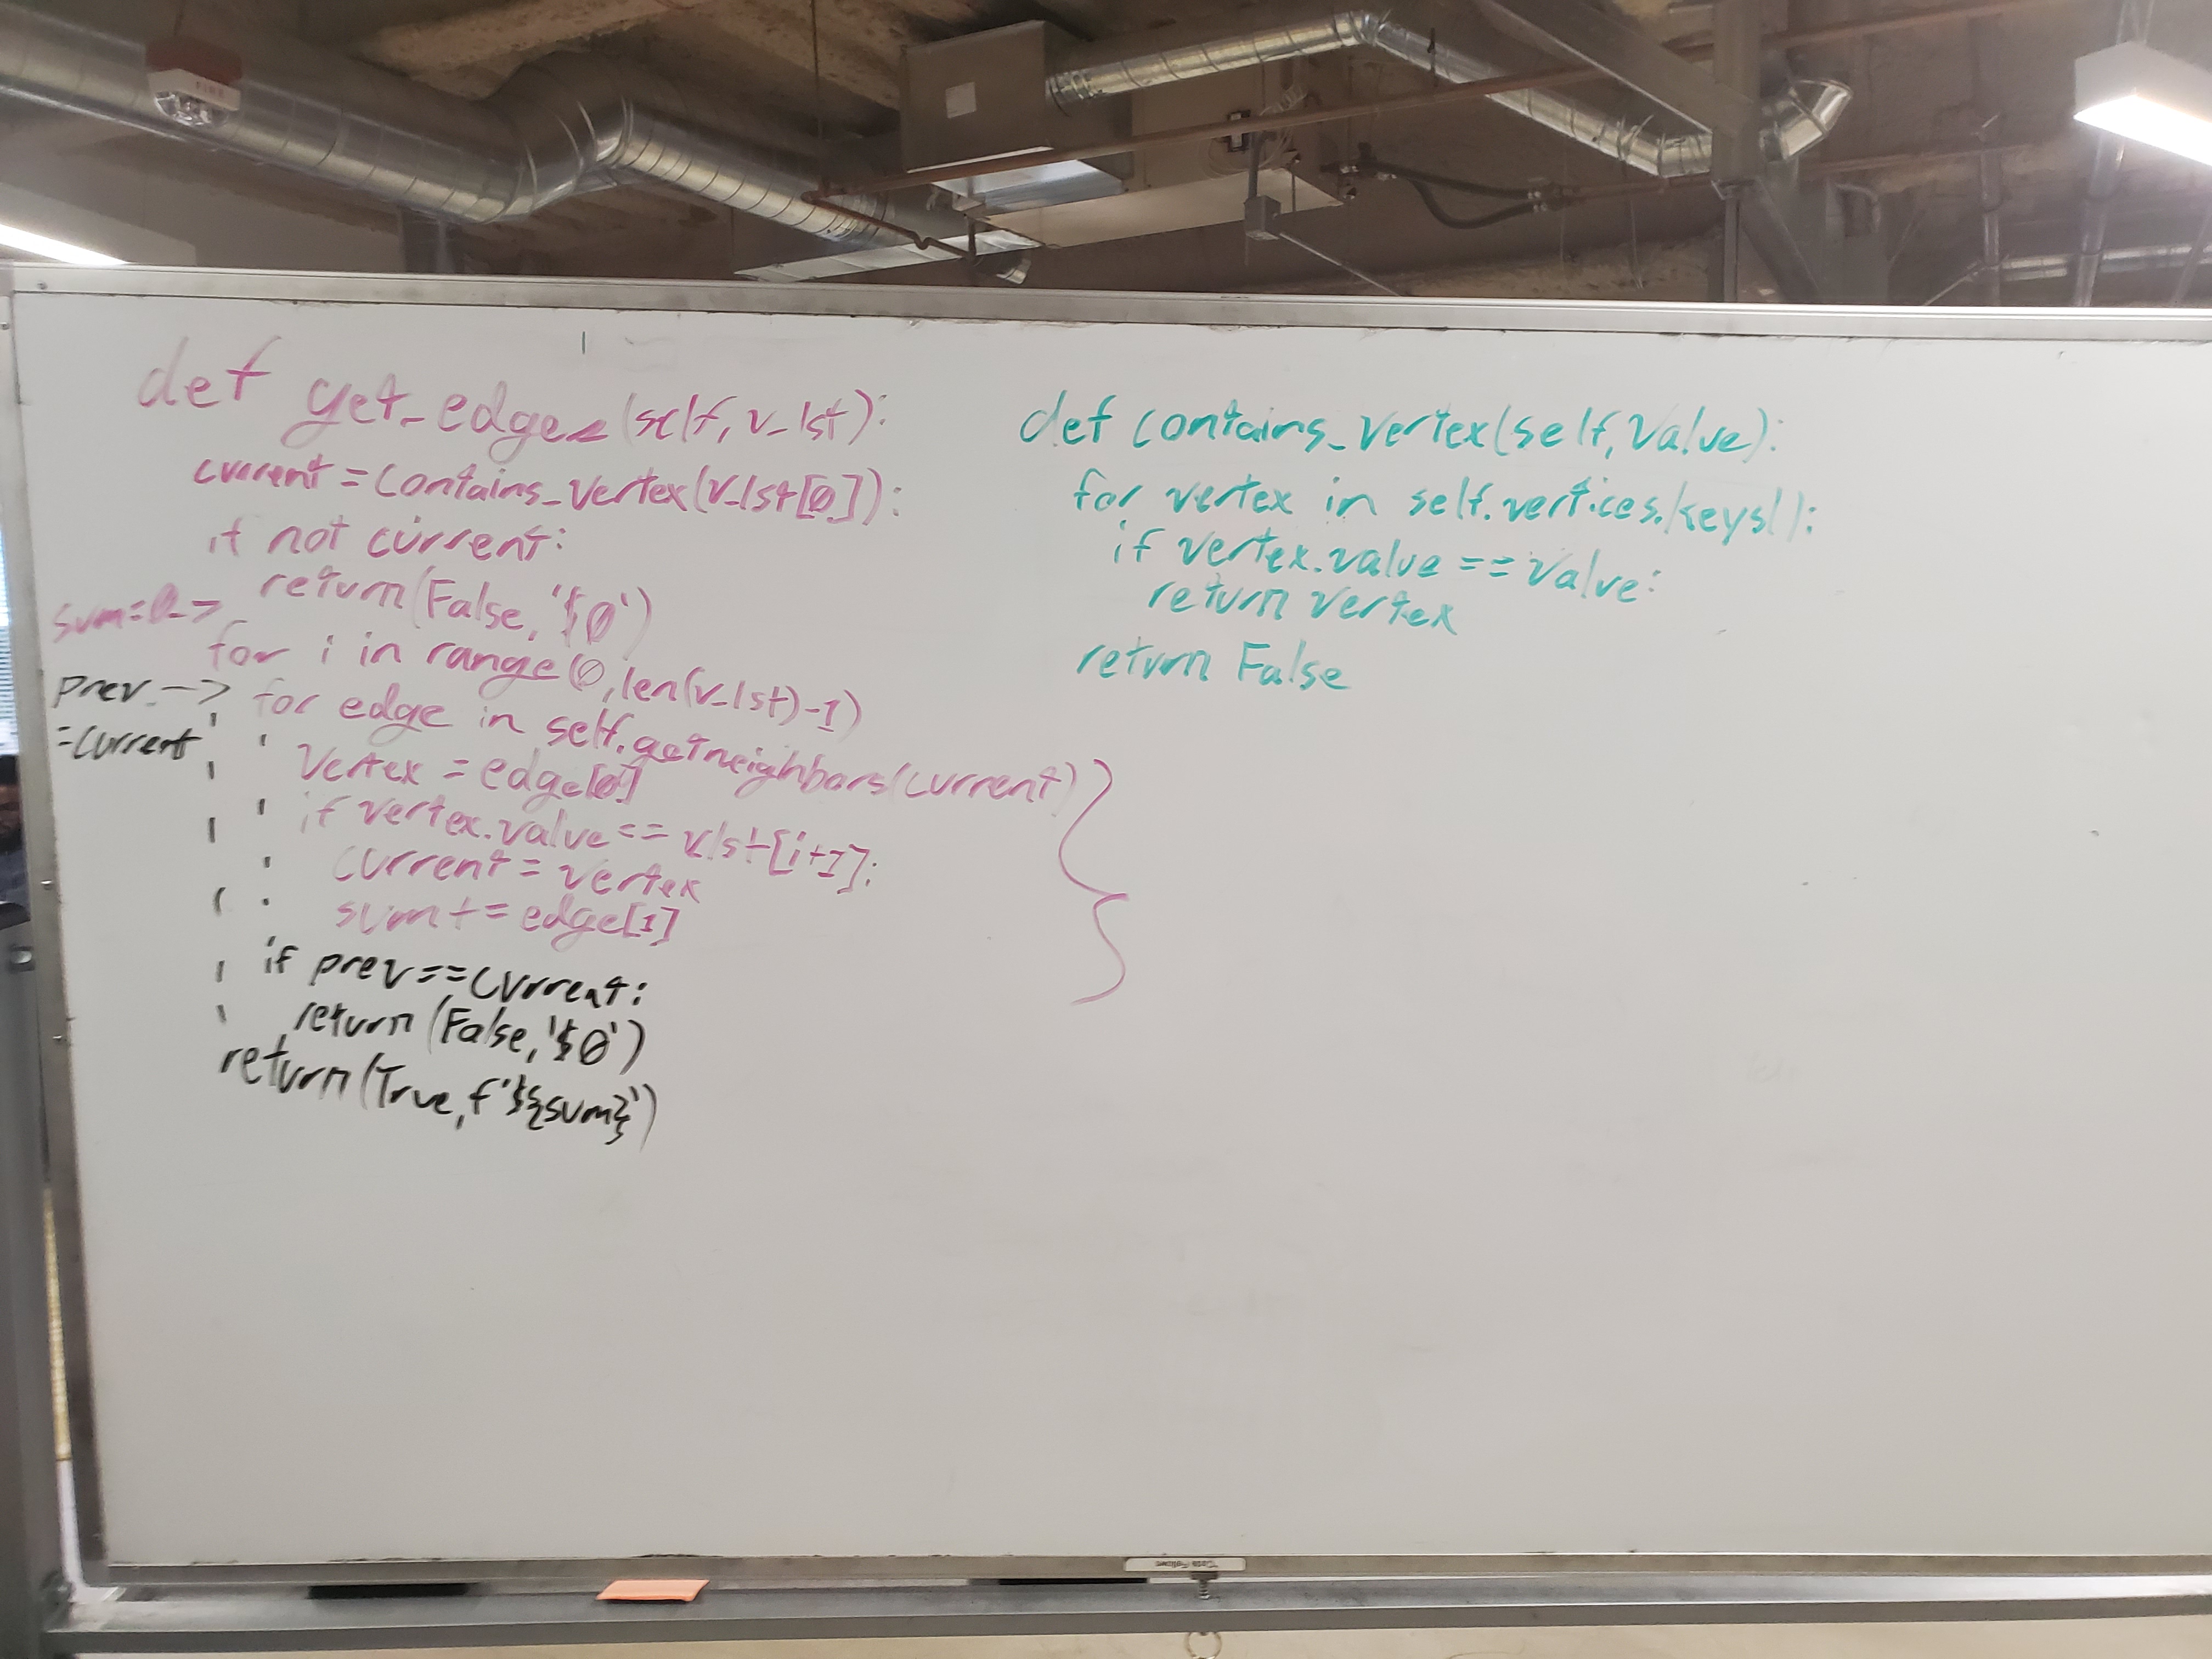 def get_edges(self, v_lst):
current = contains_vertex(v_lst[0]):
if not current:
return(False, '$0')
sum=0->
for i in range(0, len(v_lst)-1)
prev -> 
=current
for edge in self.getneighbors(current)
vertex = edge[0]
if vertex.value == vlst[i+1]:
current = vertex
sum += edge[1]
if prev==current:
return (False, '$0')
return(True, f'${sum}')
def contains_vertex(self, value):
for vertex in self.vertices.keys():
if vertex.value == value:
return vertex
return False
FIRE